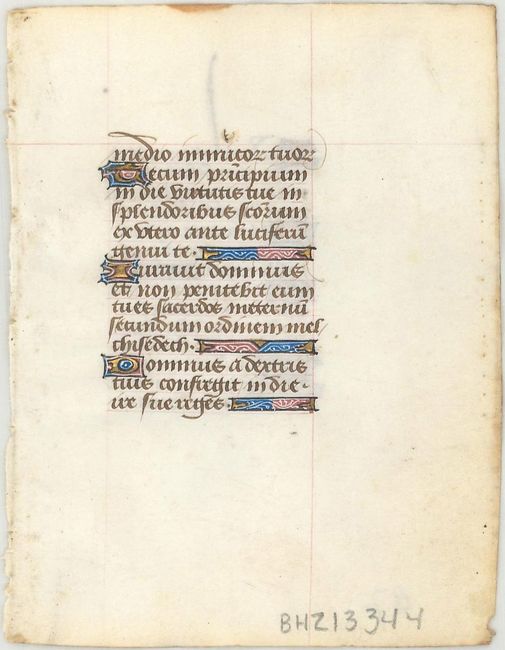 medio inimicor tuor
Tecum principium
in die virtutis tue in
splendoribus scorum
ex vtero ante luciferu
genui te.
Iurauit dominus
et non penitebit eum
tu es sacerdos ineternu
secundum ordinem mel
chisedech.
Dominus a dextris
tuis confregit in die
ire sue reges.
BHZ13344